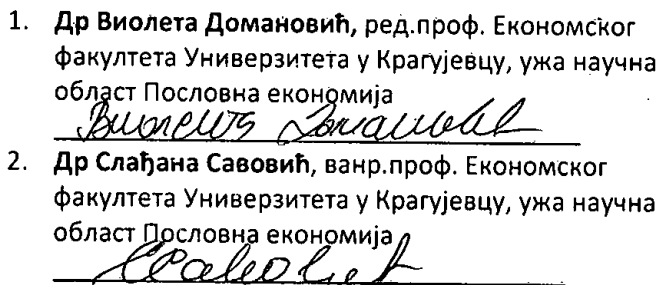 1. Др Виолета Домановић, ред.проф. Економског
факултета Универзитета у Крагујевцу, ужа научна
област Пословна економија
Виолета Домановић
2. Др Слађана Савовић, ванр.проф. Економског
факултета Универзитета у Крагујевцу, ужа научна
област Пословна економија
ССавовић